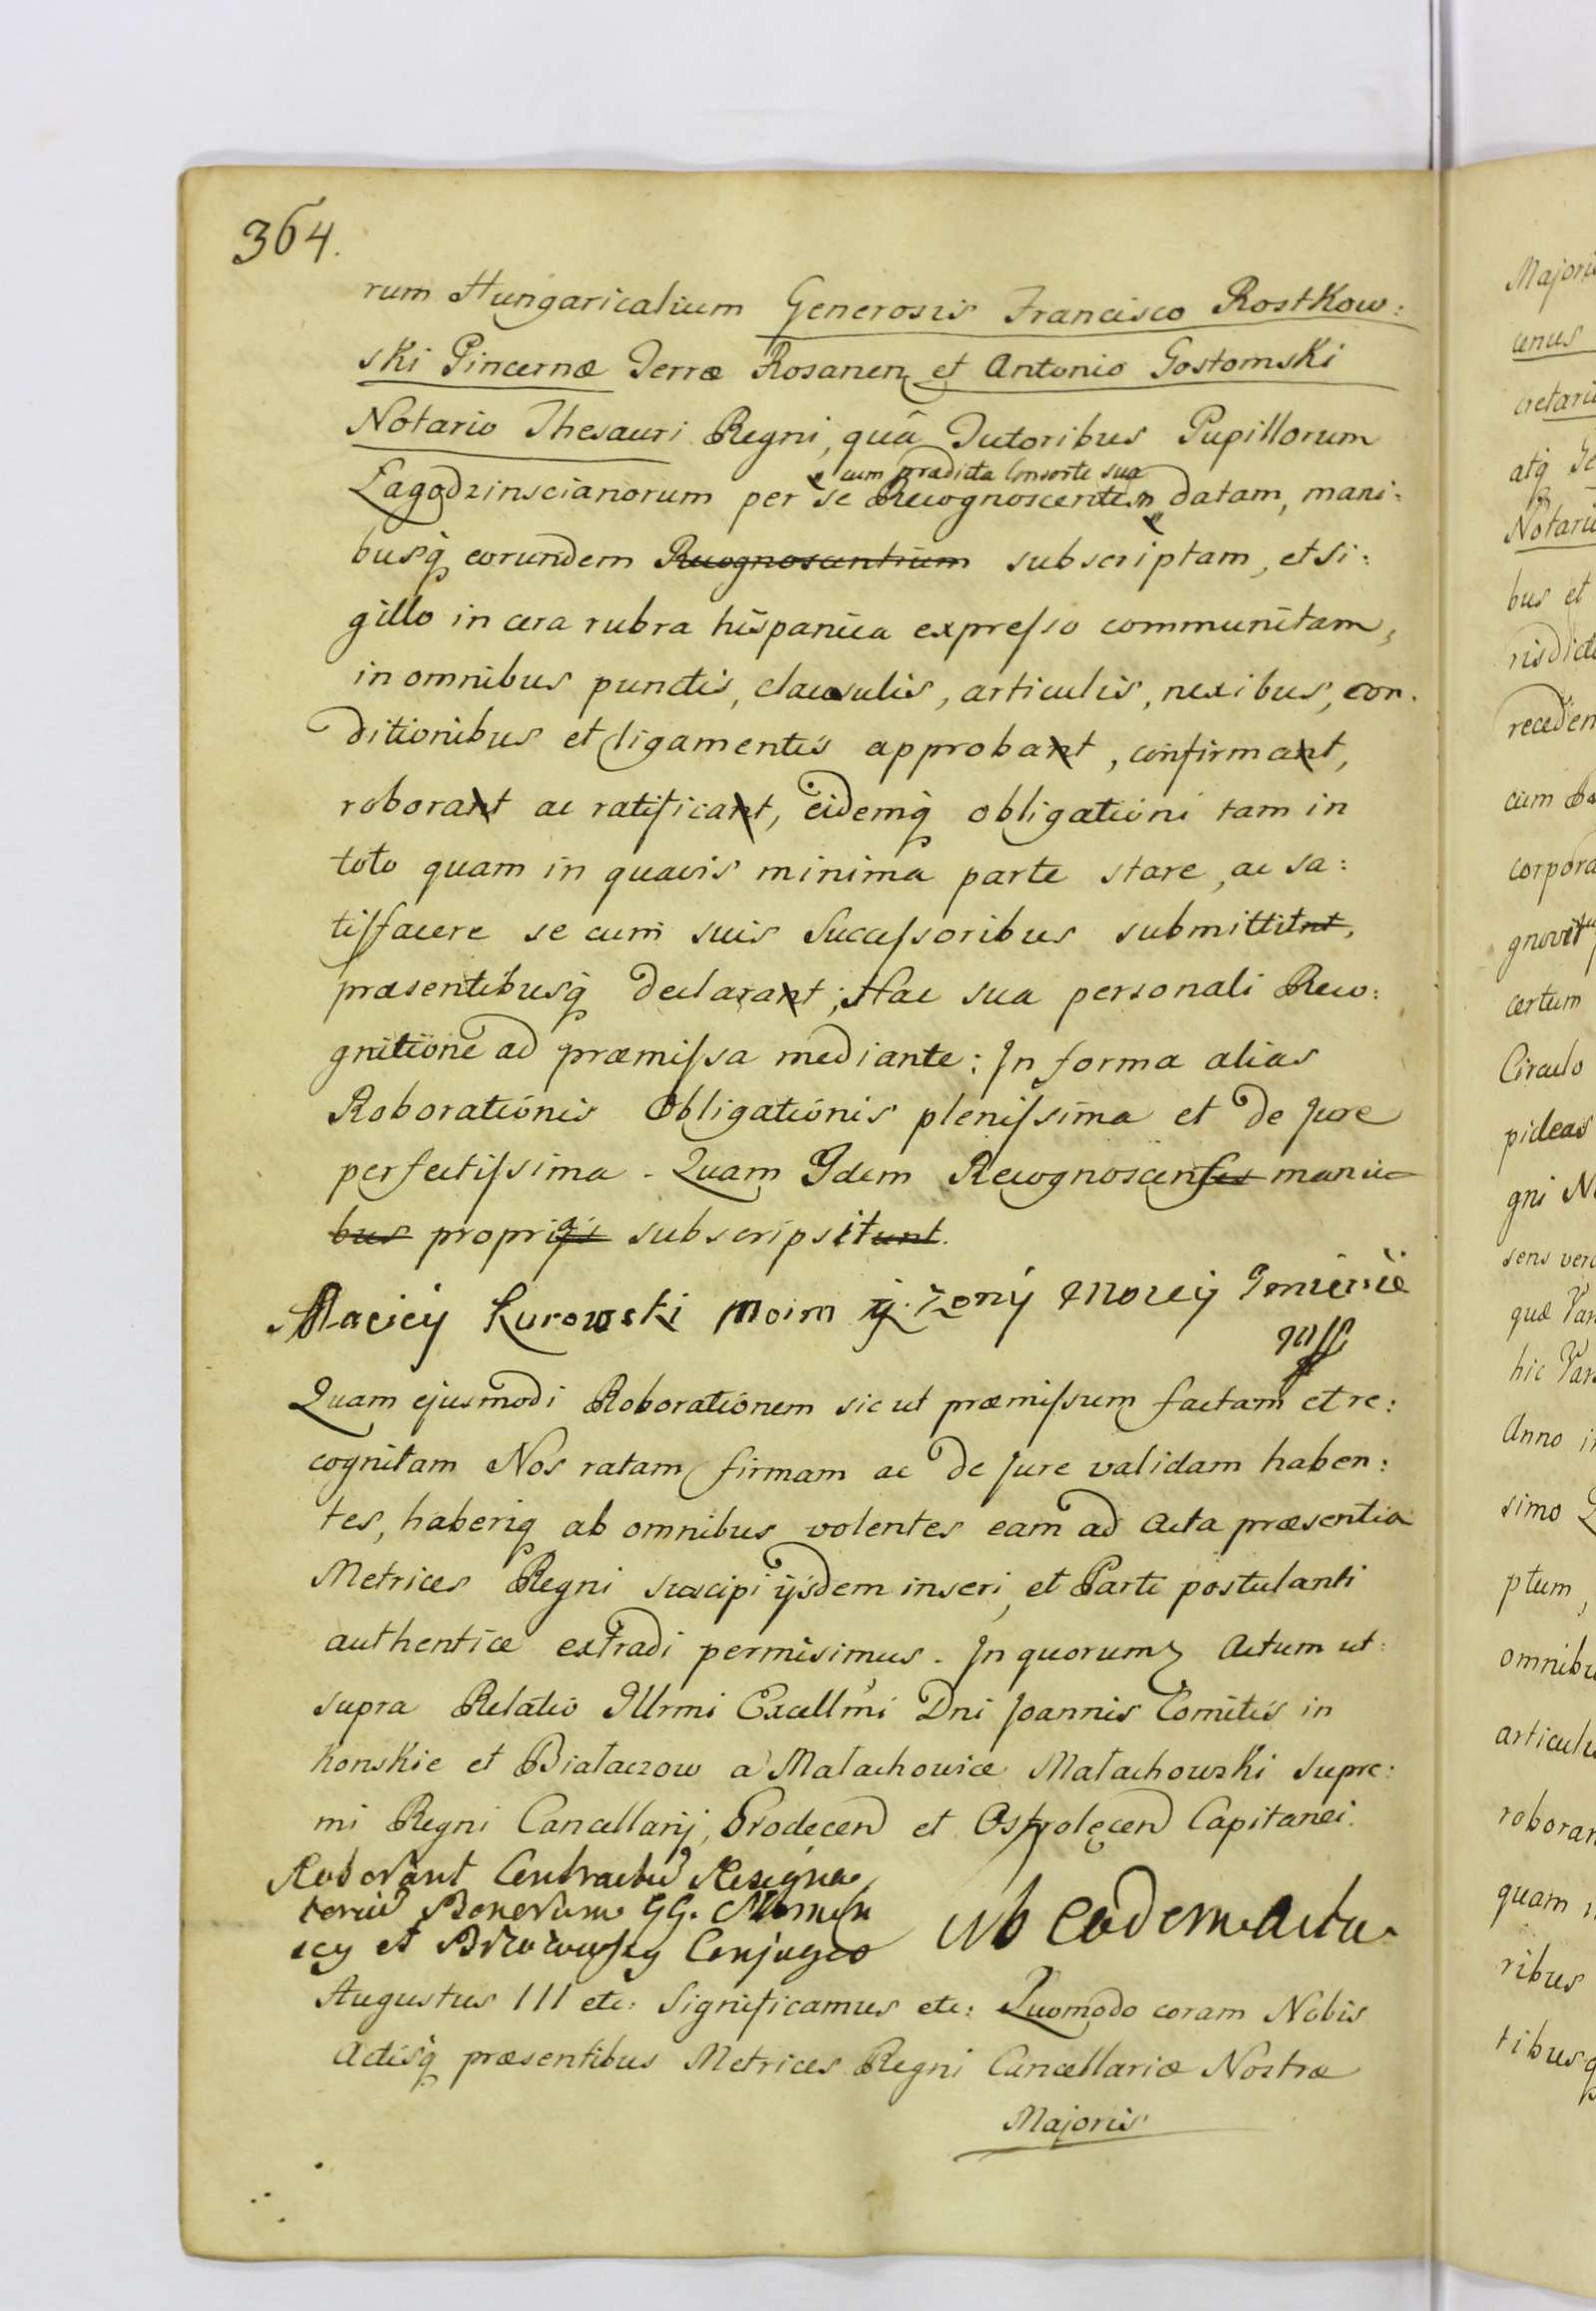 364.
rum Hungaricalium Generosis Francisco Rostkow:
ski Pincernæ Terræ Rosanen et Antonio Gostomski
Notario Thesauri Regni, quâ Tutoribus Pupillorum
cum prædicta Consorte sua
Łagodzinscianorum per se Recognoscentem datam, mani:
busq́ eorundem Recognoscentium subscriptam, et si:
gillo in cera rubra hispanica expresso communitam,
in omnibus punctis, clausulis, articulis, nexibus, con:
ditionibus et ligamentis approbant, confirmant,
roborant ac ratificant, eidemq́ obligationi tam in
toto quam in quavis minima parte stare, ac sa:
tisfacere se cum suis Successoribus submittitnt,
præsentibusq́ declarant; Hac sua personali Reco:
gnitione ad præmissa mediante: In forma alias
Roborationis Obligationis plenissima et de Jure
perfectissima. Quam Idem Recognoscenses manu
bus propriis subscripsitunt.
Maciey Kurowski moim ij żony Moiey Imienie
mff
Quam ejusmodi Roborationem sic ut præmissum factam et re:
cognitam Nos ratam firmam ac de Jure validam haben:
tes, haberiq́ ab omnibus volentes eam ad Acta præsentia
Metrices Regni suscipi ijsdem inseri, et Parti postulanti
authentice extradi permisimus. In quorum Actum ut
supra Relatio Illrmi Excellmi Dni Joannis Comitis in
Konskie et Białaczow a Małachowice Małachowski Supre:
mi Regni Cancellarij, Grodecen et Ostrolęcen Capitanei.
Roborant Contractu Resigna
toriu Bonorum GG.
scy et Conjuges
sub eodem Actu
Augustus III etc: Significamus etc: Quomodo coram Nobis
Actisq́ præsentibus Metrices Regni Cancellariæ Nostræ
Majoris
Majoris
cenus
cretariu
atq́ Ge
Notariu
bus et
risdicti
receden
cum
corpora
gnovit
certum
Circulo
pideas
gni N
sens vero
quæ Var
hic Var
Anno in
simo
ptum,
omnibu
articulis
roboran
quam
ribus
tibusq́